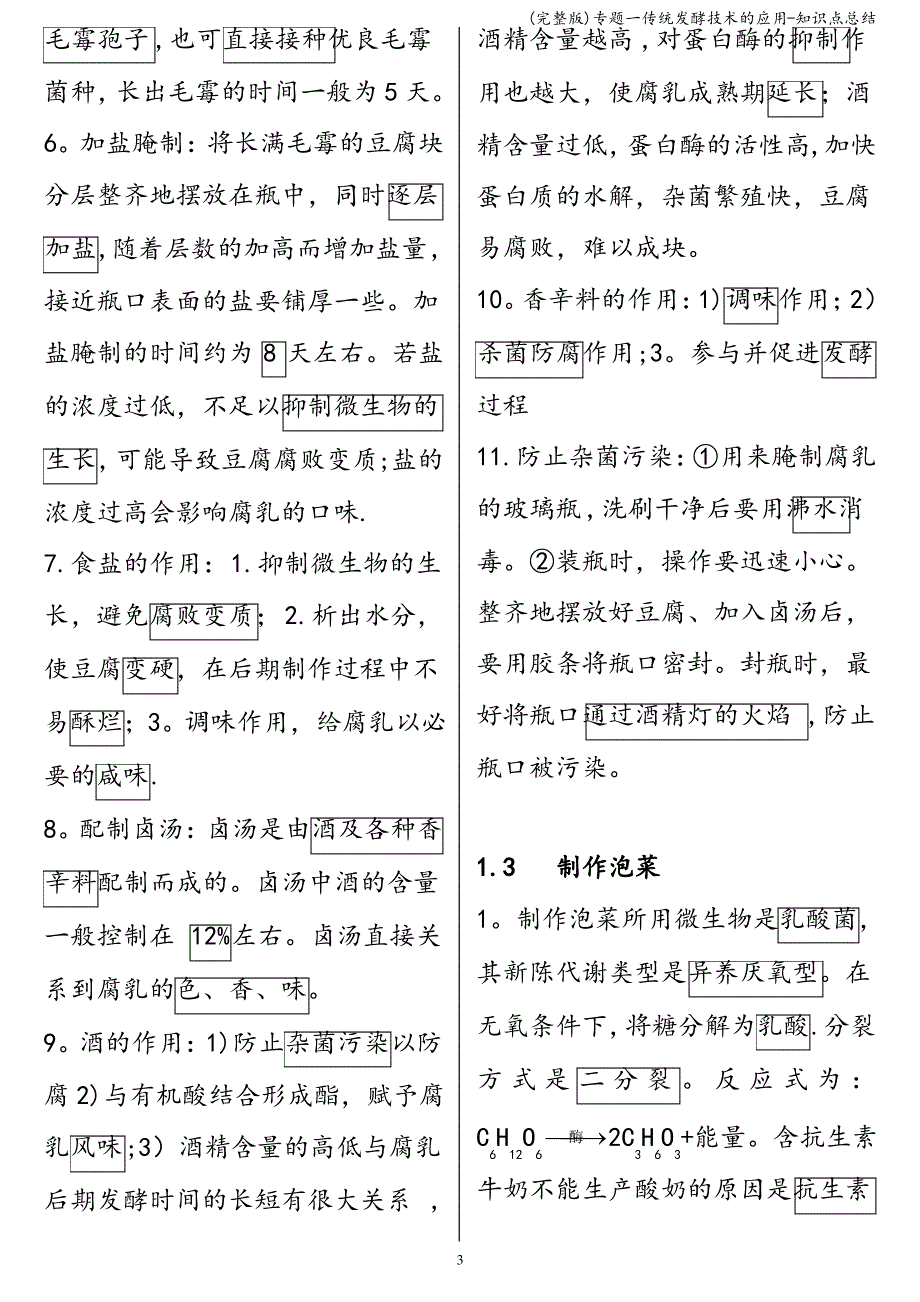 (完整版)专题一传统发酵技术的应用-知识点总结
毛霉孢子,也可直接接种优良毛霉
菌种,长出毛霉的时间一般为5天。
6。加盐腌制:将长满毛霉的豆腐块
分层整齐地摆放在瓶中,同时逐层
加盐,随着层数的加高而增加盐量,
接近瓶口表面的盐要铺厚一些。加
盐腌制的时间约为8天左右。若盐
的浓度过低,不足以抑制微生物的
生长,可能导致豆腐腐败变质;盐的
浓度过高会影响腐乳的口味.
7.食盐的作用:1.抑制微生物的生
长,避免腐败变质;2.析出水分,
使豆腐变硬,在后期制作过程中不
易酥烂;3。调味作用,给腐乳以必
要的咸味.
8。配制卤汤:卤汤是由酒及各种香
辛料配制而成的。卤汤中酒的含量
一般控制在 12%左右。卤汤直接关
系到腐乳的色、香、味。
9。酒的作用:1)防止杂菌污染以防
腐2)与有机酸结合形成酯,赋予腐
乳风味;3)酒精含量的高低与腐乳
后期发酵时间的长短有很大关系,
酒精含量越高,对蛋白酶的抑制作
用也越大,使腐乳成熟期延长;酒
精含量过低,蛋白酶的活性高,加快
蛋白质的水解,杂菌繁殖快,豆腐
易腐败,难以成块。
10。香辛料的作用:1)调味作用;2)
杀菌防腐作用;3。参与并促进发酵
过程
11.防止杂菌污染:①用来腌制腐乳
的玻璃瓶,洗刷干净后要用沸水消
毒。②装瓶时,操作要迅速小心。
整齐地摆放好豆腐、加入卤汤后,
要用胶条将瓶口密封。封瓶时,最
好将瓶口通过酒精灯的火焰,防止
瓶口被污染。
1.3 制作泡菜
1。制作泡菜所用微生物是乳酸菌,
其新陈代谢类型是异养厌氧型。在
无氧条件下,将糖分解为乳酸.分裂
方式是二分裂。反应式为:
C₆H₁₂O₆ 酶→2C₃H₆O₃+能量。含抗生素
牛奶不能生产酸奶的原因是抗生素
3